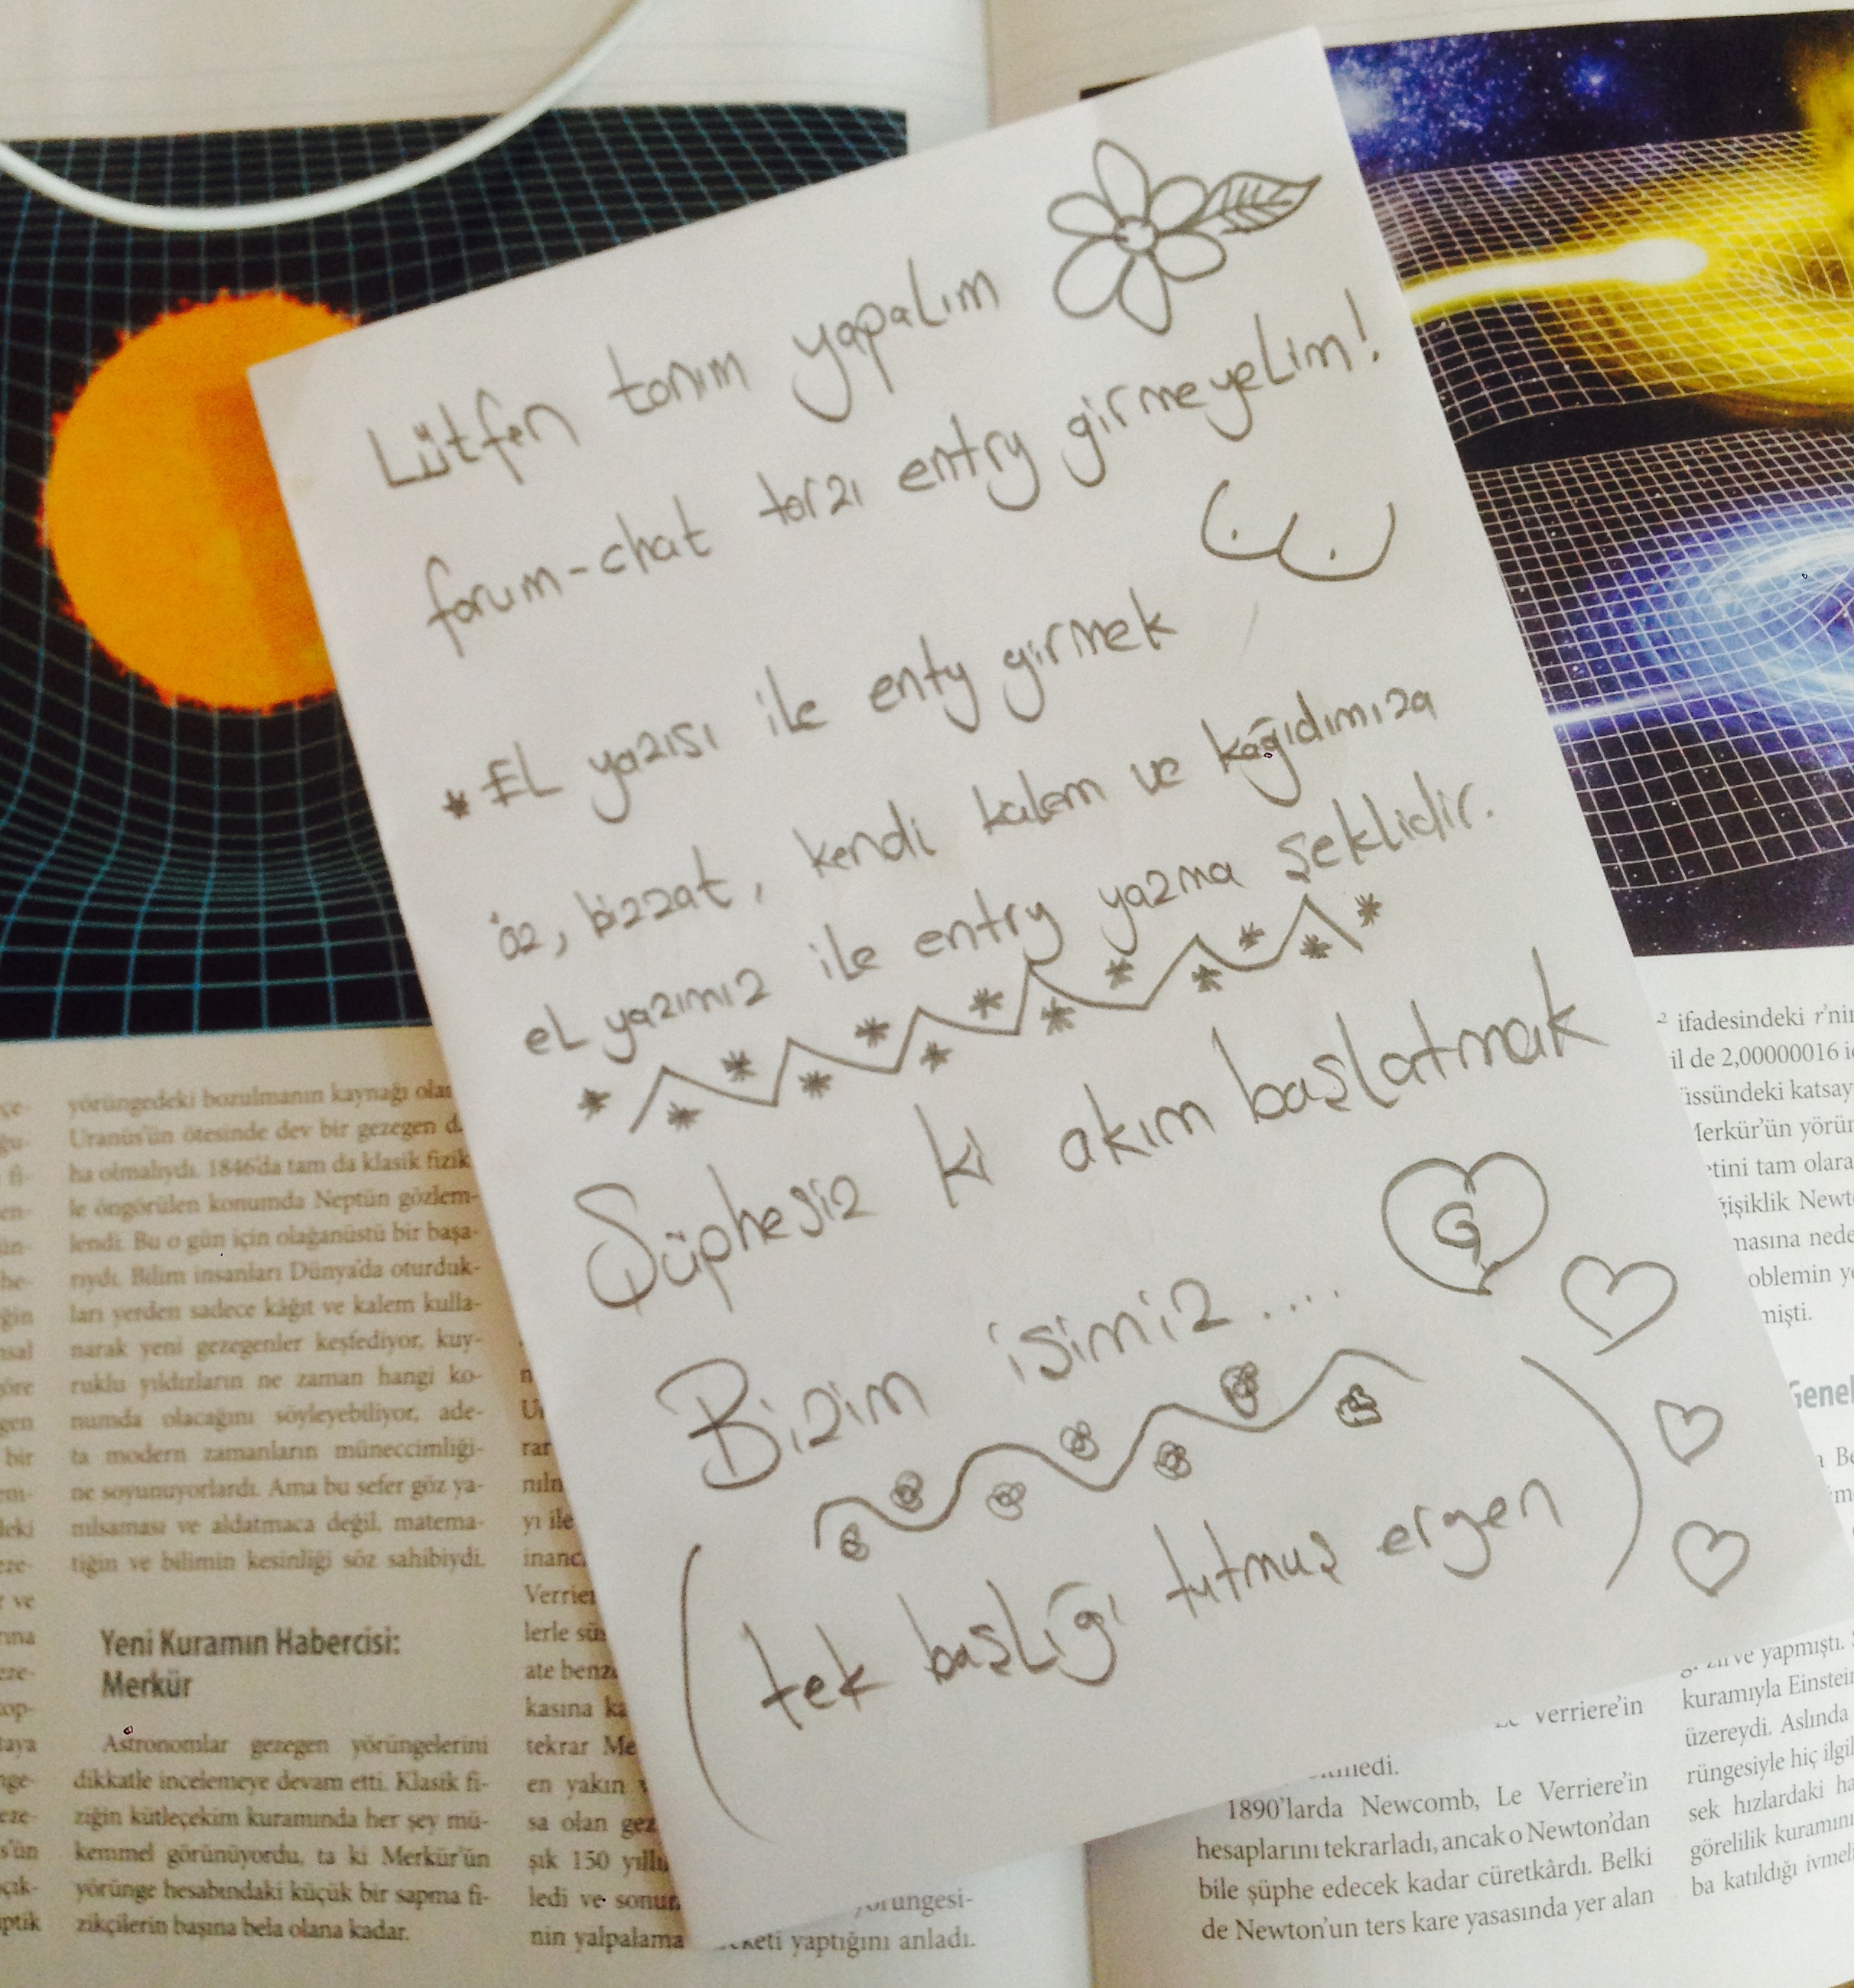 Lütfen tanım yapalım
forum-chat tarzı entry girmeyelim!
* El yazısı ile enty girmek
öz, bizzat, kendi kalem ve kağıdımıza
el yazımız ile entry yazma şeklidir.
Şüphesiz ki akım başlatmak
Bizim işimiz....
G
(tek başlığı tutmuş ergen)
yörüngedeki bozulmanın kaynağı
Uranüs'ün ötesinde dev bir gezegen
ha olmalıydı. 1846'da tam da klasik fizik
le öngörülen konumda Neptün gözlem-
lendi. Bu o gün için olağanüstü bir başa-
rıydı. Bilim insanları Dünya'da oturduk-
ları yerden sadece kâğıt ve kalem kulla-
narak yeni gezegenler keşfediyor, kuy-
ruklu yıldızların ne zaman hangi ko-
numda olacağını söyleyebiliyor, ade-
ta modern zamanların müneccimliği-
ne soyunuyorlardı. Ama bu sefer göz ya-
nılsaması ve aldatmaca değil, matema-
tiğin ve bilimin kesinliği söz sahibiydi.
Yeni Kuramın Habercisi:
Merkür
Astronomlar gezegen yörüngelerini
dikkatle incelemeye devam etti. Klasik fi-
ziğin kütleçekim kuramında her şey mü-
kemmel görünüyordu, ta ki Merkür'ün
yörünge hesabındaki küçük bir sapma fi-
zikçilerin başına bela olana kadar.
yı ile
Verrier
lerle
ate
kasına
tekrar
en yakın
sa olan
şık 150
ledi ve
nin yalpalama
yaptığını anladı.
Verriere'in
1890'larda Newcomb, Le Verriere'in
hesaplarını tekrarladı, ancak o Newton'dan
bile şüphe edecek kadar cüretkârdı. Belki
de Newton'un ters kare yasasında yer alan
ifadesindeki r'nin
de 2,00000016
katsay
Merkür'ün
tam
Newt
Genel
ve yapmıştı.
kuramıyla Einstein
üzereydi. Aslında
hiç
sek hızlardaki
görelilik kuramını
ba katıldığı